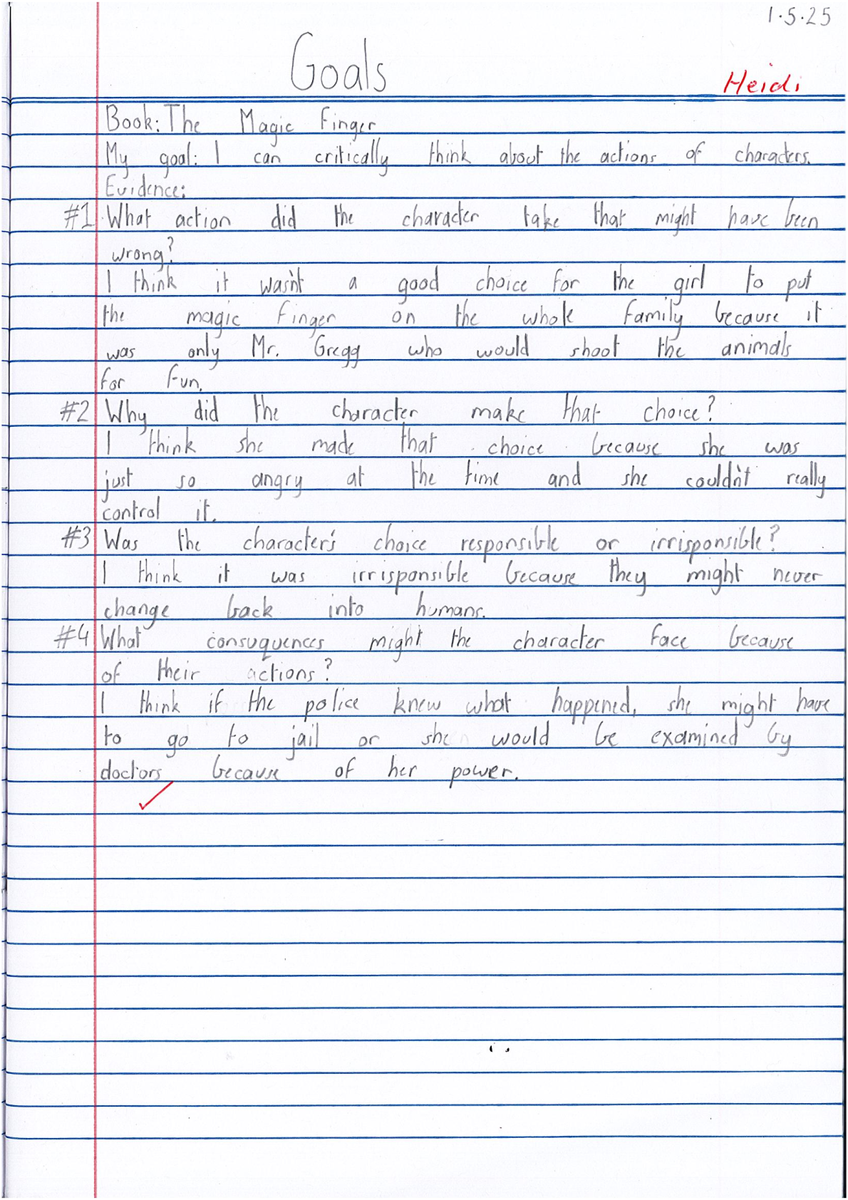 1.5.25
Goals
Heidi
Book: The Magic Finger
My goal: I can critically think about the actions of characters.
Evidence:
#1 What action did the character take that might have been
wrong?
I think it wasn't a good choice for the girl to put
the magic finger on the whole family because it
was only Mr. Gregg who would shoot the animals
for fun.
#2 Why did the character make that choice?
I think she made that choice because she was
just so angry at the time and she couldn't really
control it.
#3 Was the character's choice responsible or irrisponsible?
I think it was irrisponsible because they might never
change back into humans.
#4 What consuquences might the character face because
of their actions?
I think if the police knew what happened, she might have
to go to jail or she would be examined by
doctors because of her power.